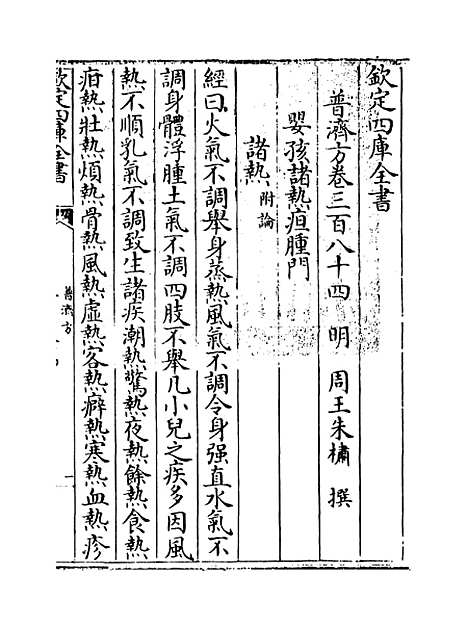 欽定四庫全書
普濟方卷三百八十四 明 周王朱橚 撰
嬰孩諸熱疸腫門
諸熱附論
經曰火氣不調舉身蒸熱風氣不調令身强直水氣不
調身體浮腫土氣不調四肢不舉凡小兒之疾多因風
熱不順乳氣不調致生諸疾潮熱驚熱夜熱餘熱食熱
疳熱壯熱煩熱骨熱風熱虚熱客熱癖熱寒熱血熱疹
欽定四庫全書
普濟方
一